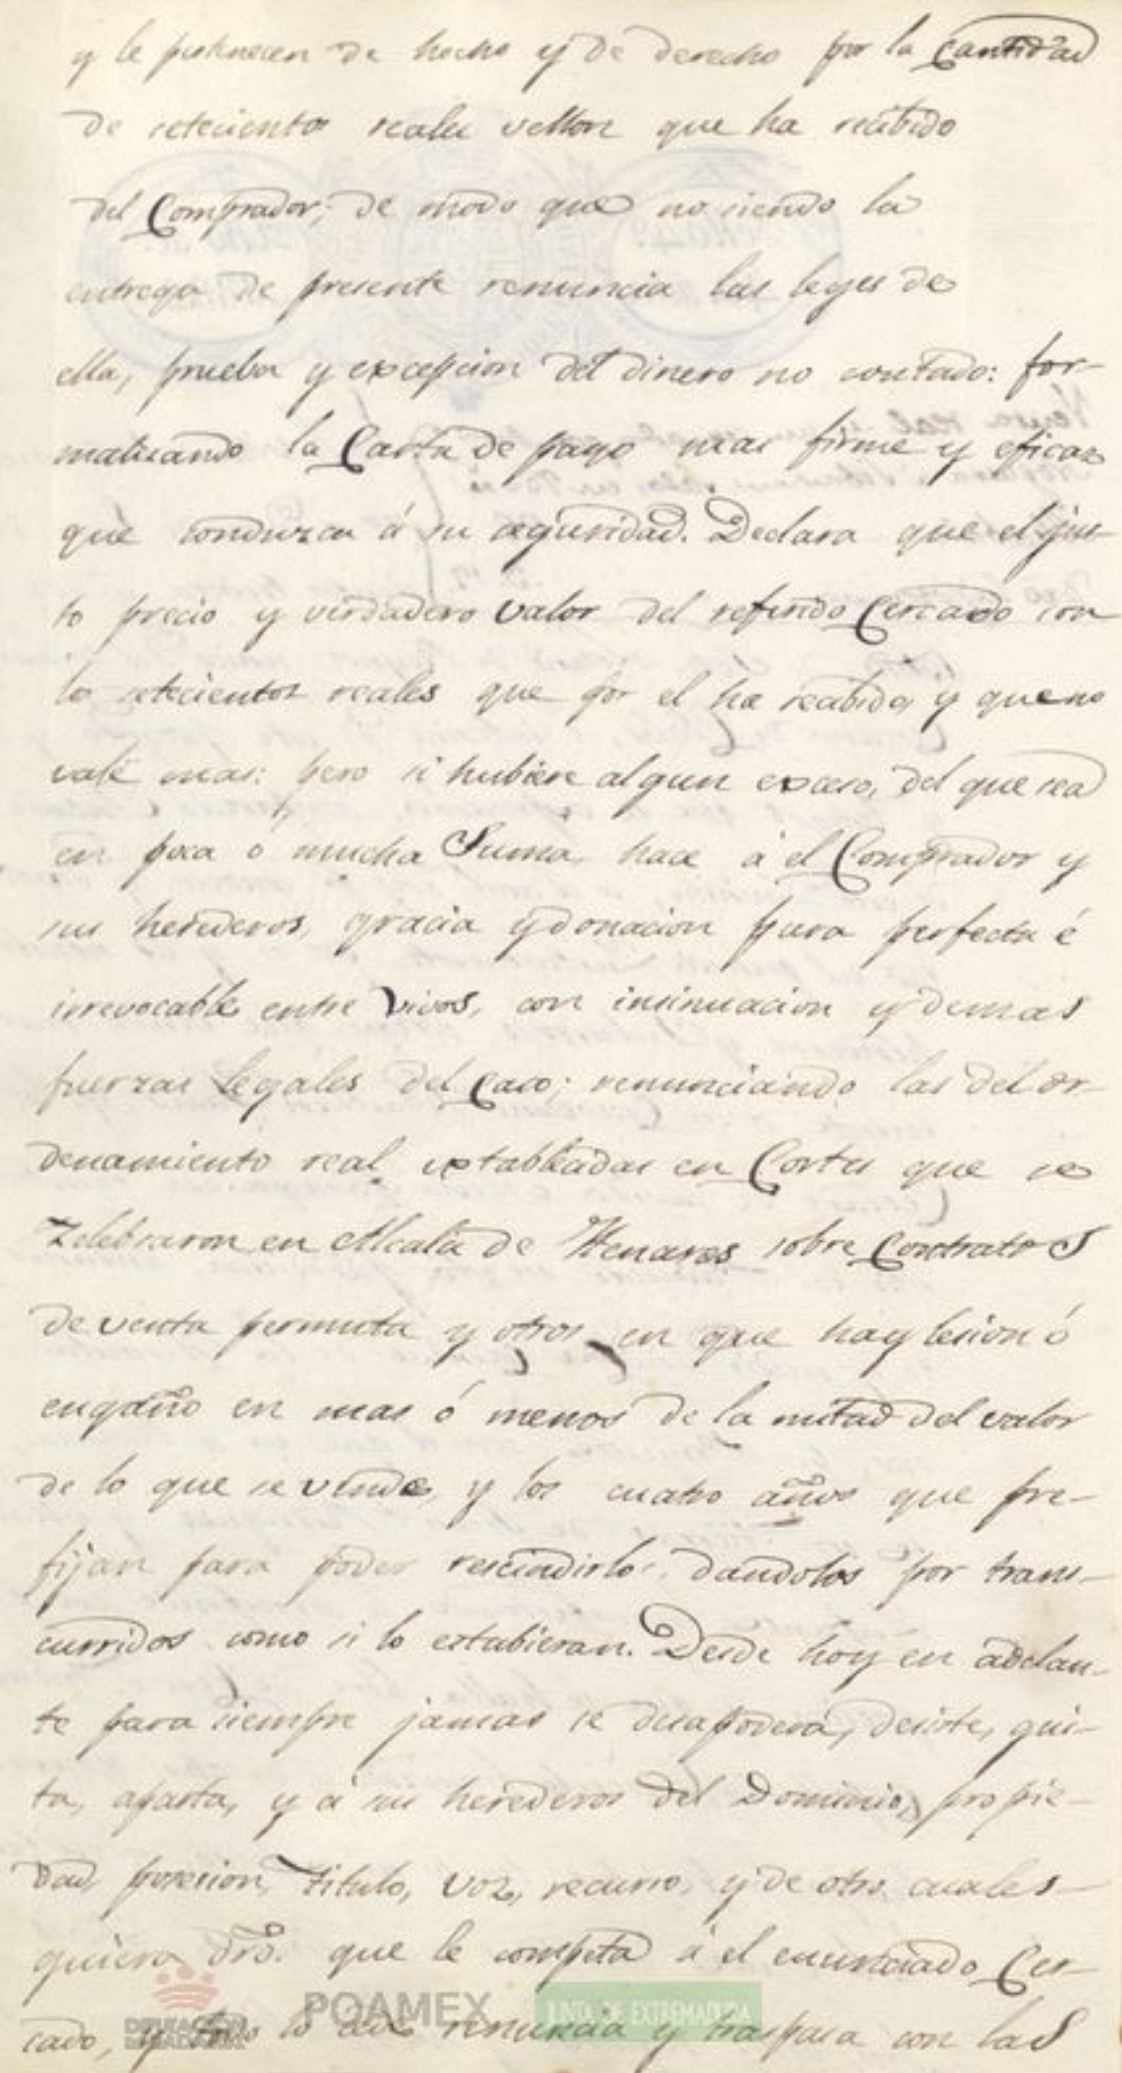 y le pertenecen de hecho y de derecho por la Cantidad
de setecientos reales vellon que ha recibido
del Comprador; de modo que no siendo la
entrega de presente renuncia las leyes de
ella, prueba y excepcion del dinero no contado: for-
malizando la Carta de pago mas firme y eficaz
que conduzca á su seguridad. Declara que el jus-
to precio y verdadero valor del referido Cercado son
lo setecientos reales que por el ha recibido, y que no
vale mas: pero si hubiere algun exceso, del que sea
en poca ó mucha Suma, hace á el Comprador y
sus herederos, gracia y donacion pura perfecta é
irrevocable entre vivos, con insinuacion y demas
fuerzas legales del Caso; renunciando las del or-
denamiento real establecidas en Cortes que se
Zelebraron en Alcalá de Henares sobre Contratos
de venta permuta y otros en que hay lesion ó
engaño en mas ó menos de la mitad del valor
de lo que se vende, y los cuatro años que pre-
fijan para poder rescindirlo: dandolos por trans-
curridos como si lo estubieran. Desde hoy en adelan-
te para siempre jamas se desapodera, desiste, qui-
ta, aparta, y á sus herederos del Dominio, propie-
dad, posesion, titulo, voz, recurso, y de otro cuales-
quiera dros. que le competa á el enunciado Cer-
cado, y todo lo renuncia y traspasa con las
DIPUTACIÓN DE BADAJOZ
POAMEX
JUNTA DE EXTREMADURA